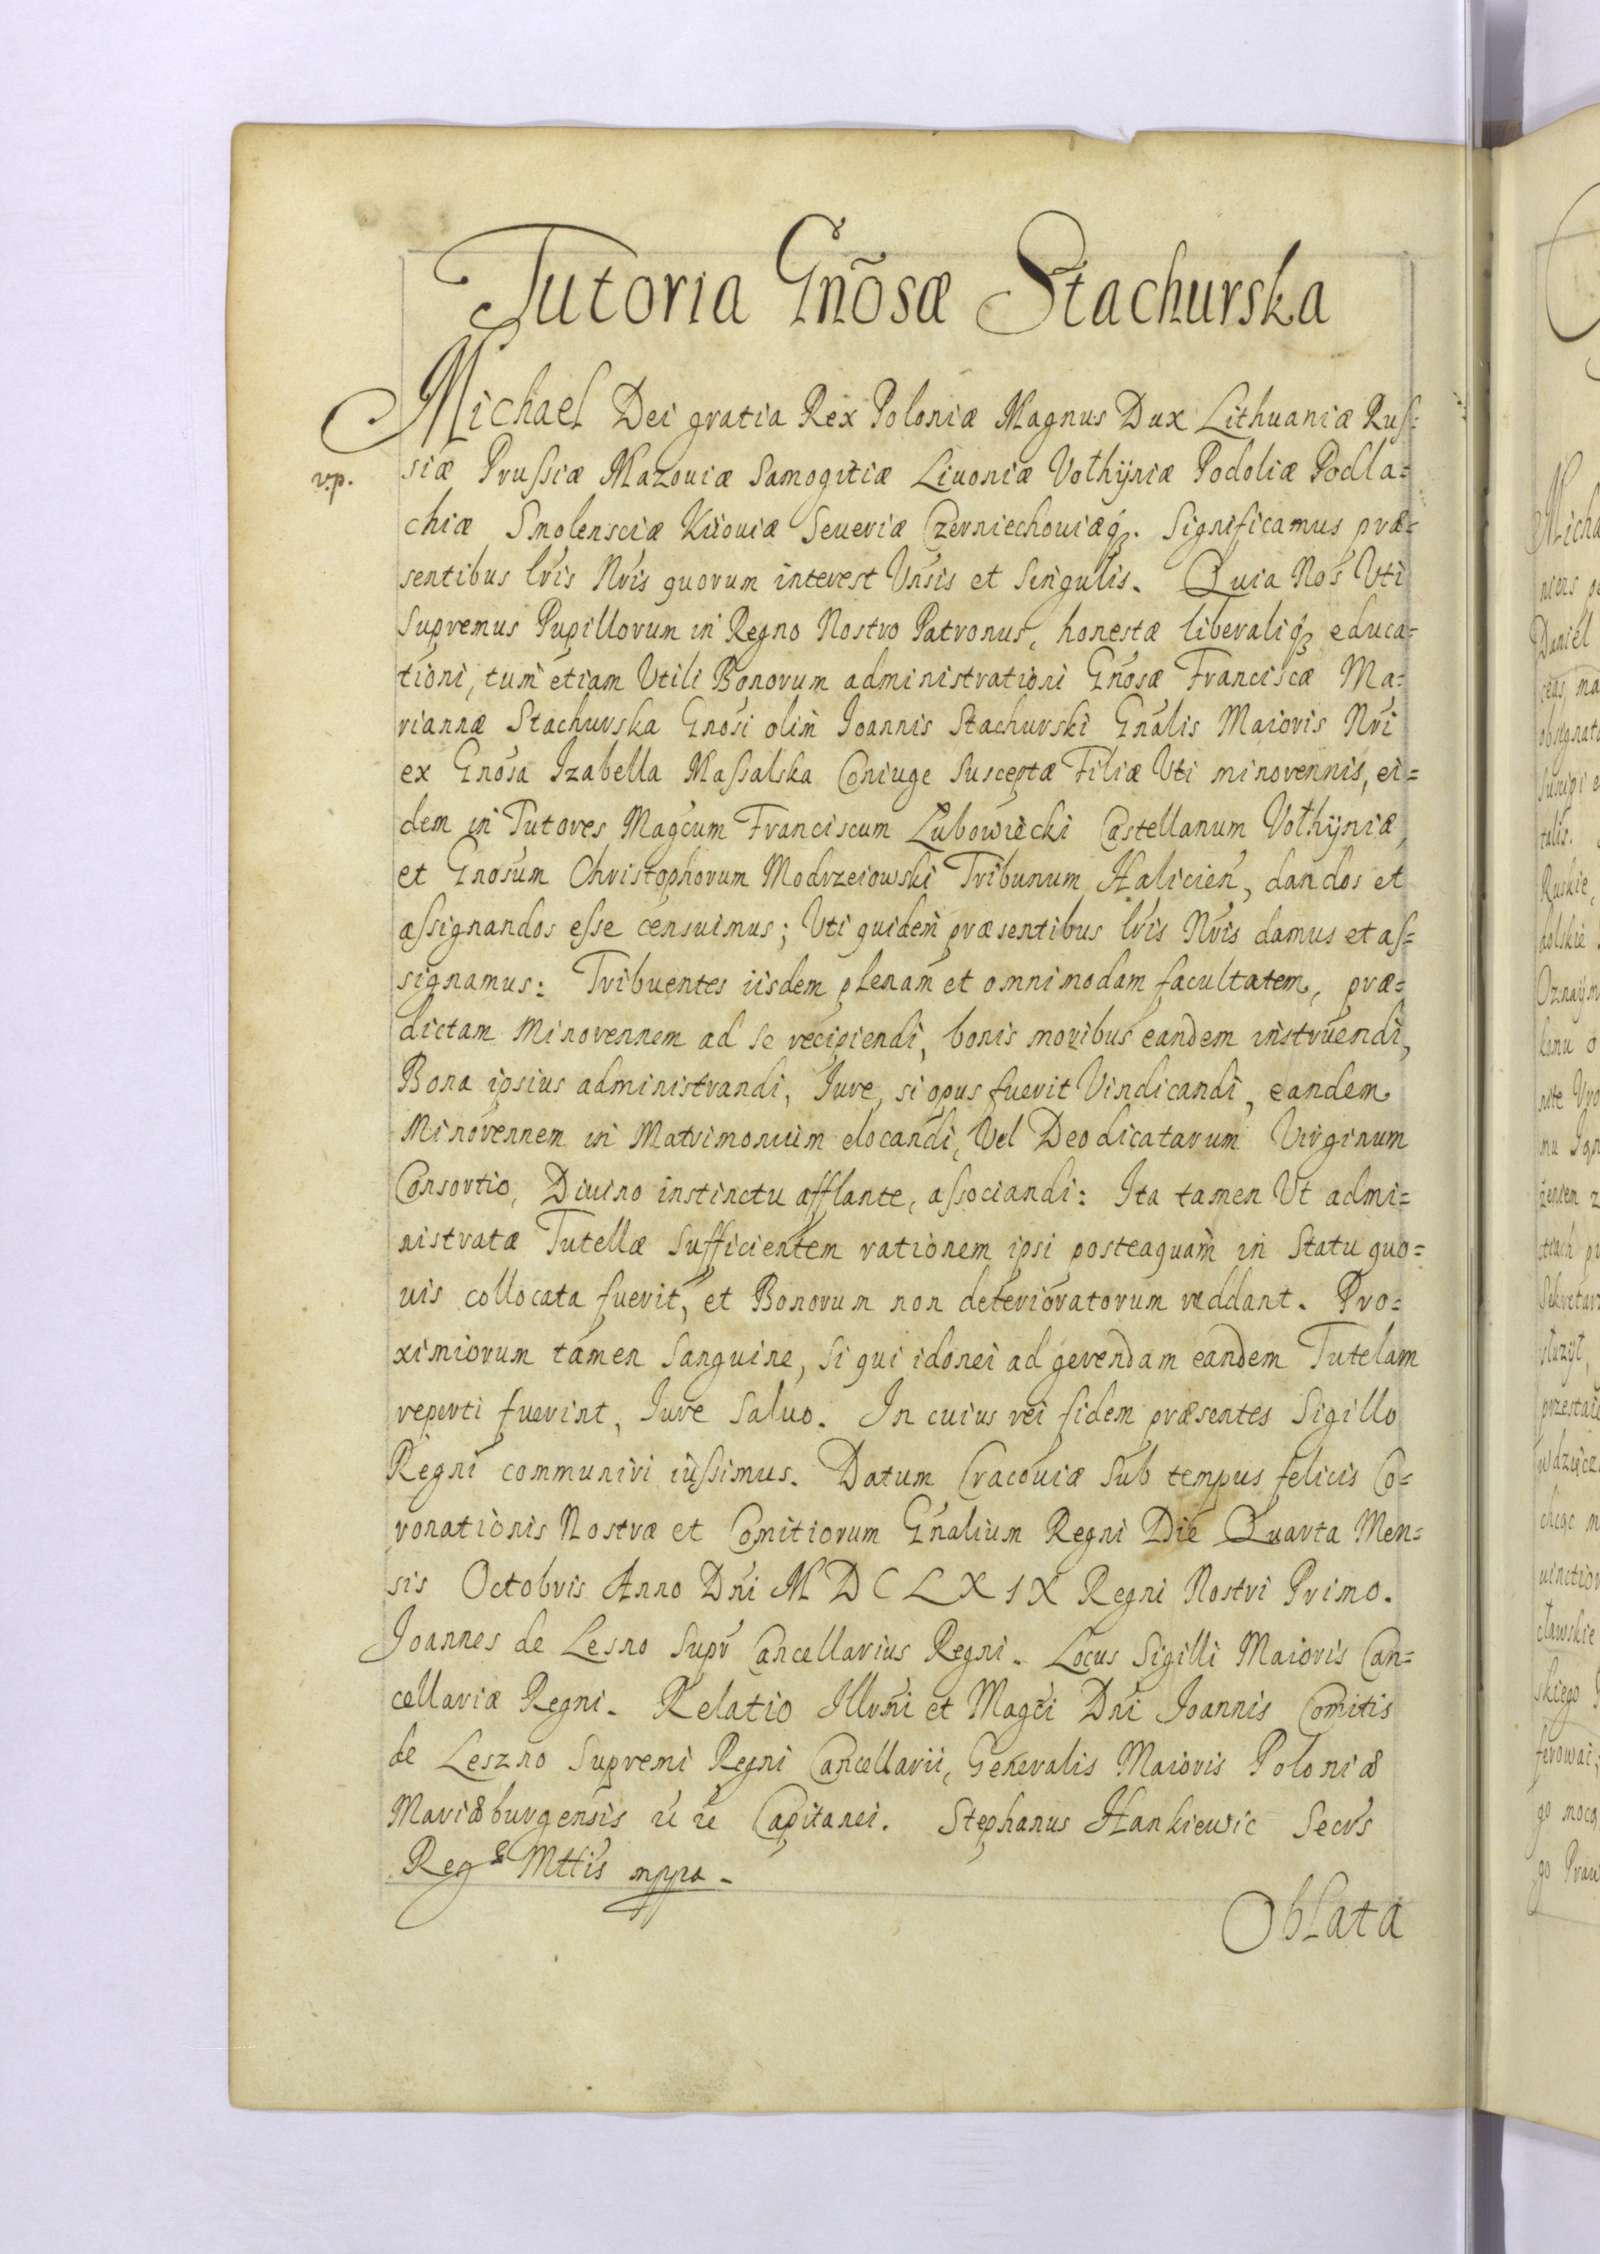 Tutoria Gnõsæ Stachurska
Michael Dei gratia Rex Poloniæ Magnus Dux Lithuaniæ Rus-
v.p.
siæ Prussiæ Mazoviæ Samogitiæ Livoniæ Vothÿniæ Podoliæ Podla=
chiæ Smolensciæ Kiioviæ Severiæ Czerniechoviæq3. Significamus præ=
sentibus lris Nris quorum interest Unsis et Singulis. Quia Nos Uti
Supremus Pupillorum in Regno Nostro Patronus, honestæ liberaliq3 educa=
tioni, tum etiam Utili Bonorum administrationi Gnosæ Franciscæ Ma=
riannæ Stachurska Gnosi olim Ioannis Stachurski Gnalis Maioris Nri
ex Gnosa Izabella Massalska Coniuge Susceptæ Filiæ Uti minorennis, ei=
dem in Tutores Magcum Franciscum Lubowiecki Castellanum Vothÿniæ,
et Gnosum Christophorum Modrzeiowski Tribunum Halicien, dandos et
assignandos esse censuimus; Uti quidem præsentibus lris Nris damus et as=
signamus: Tribuentes iisdem plenam et omnimodam facultatem, præ=
dictam Minorennem ad se recipiendi, bonis moribus eandem instruendi,
Bona ipsius administrandi, Iure, si opus fuerit Vindicandi, eandem
Minorennem in Matrimonium elocandi, Vel Deo dicatarum Virginum
Consortio, Divino instinctu afflante, associandi: Ita tamen Ut admi=
nistratæ Tutellæ Sufficientem rationem ipsi posteaquam in Statu quo=
vis collocata fuerit, et Bonorum non deterioratorum reddant. Pro=
ximiorum tamen Sanguine, Si qui idonei ad gerendam eandem Tutelam
reperti fuerint, Iure Salvo. In cuius rei fidem præsentes Sigillo
Regni communiri iussimus. Datum Cracoviæ Sub tempus felicis Co=
ronationis Nostræ et Comitiorum Gnalium Regni Die Quarta Men=
sis Octobris Anno Dni M D C L X I X Regni Nostri Primo.
Joannes de Lesno Supr Cancellarius Regni. Locus Sigilli Maioris Can=
cellariæ Regni. Relatio Illrni et Magci Dni Ioannis Comitis
de Leszno Supremi Regni Cancellarii, Generalis Maioris Poloniæ
Mariæburgensis Capitanei. Stephanus Hankiewic Secrs
Regæ Mttis mppa.
Oblata